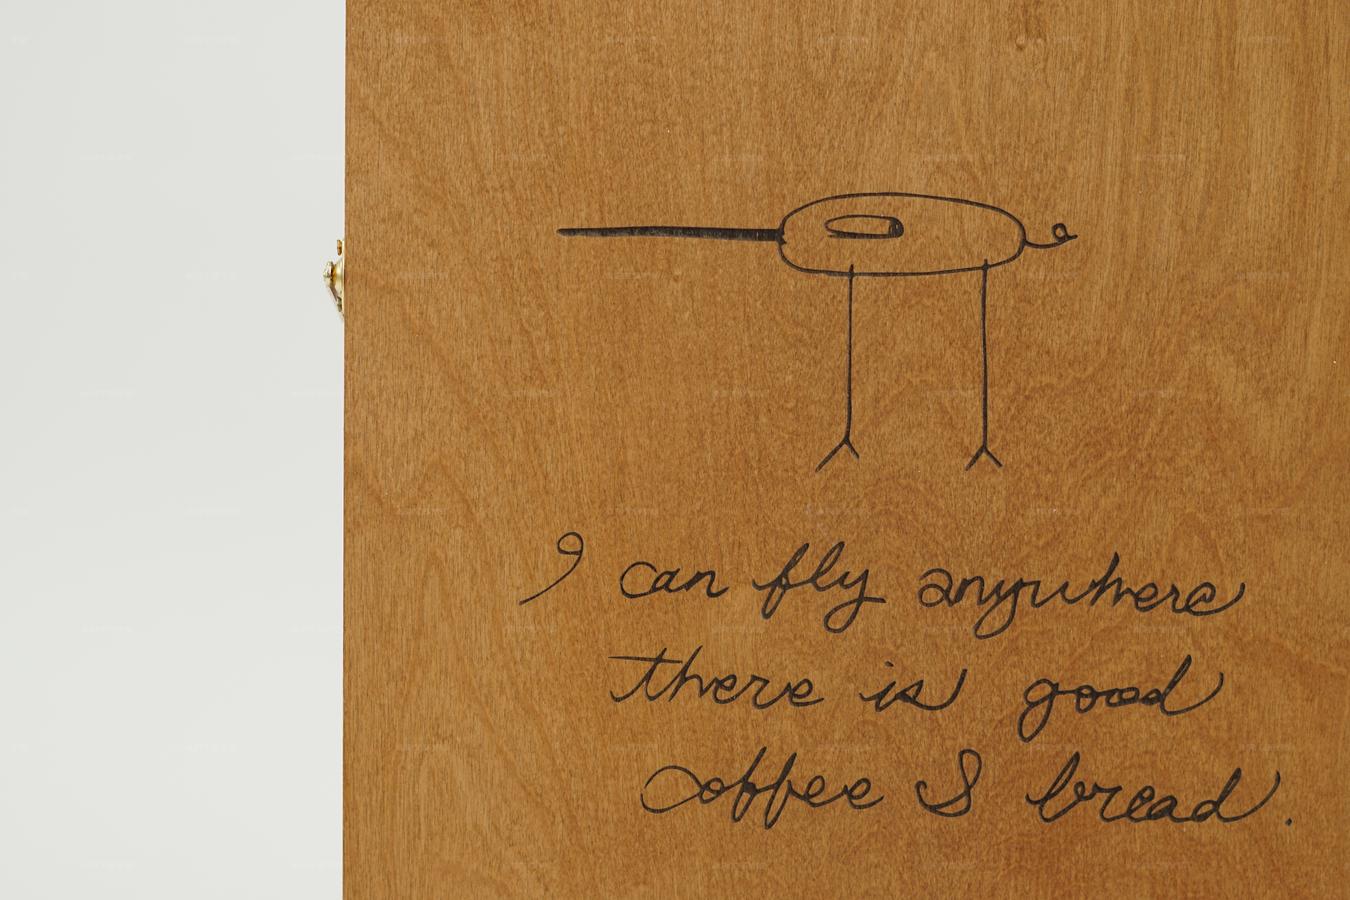 I can fly anywhere
there is good
coffee & bread.